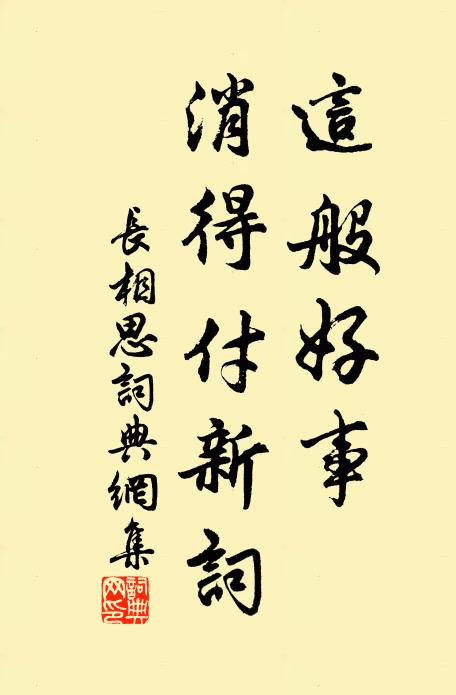 這般好事
消得付新詞
長相思詞典網集
詞典
网印